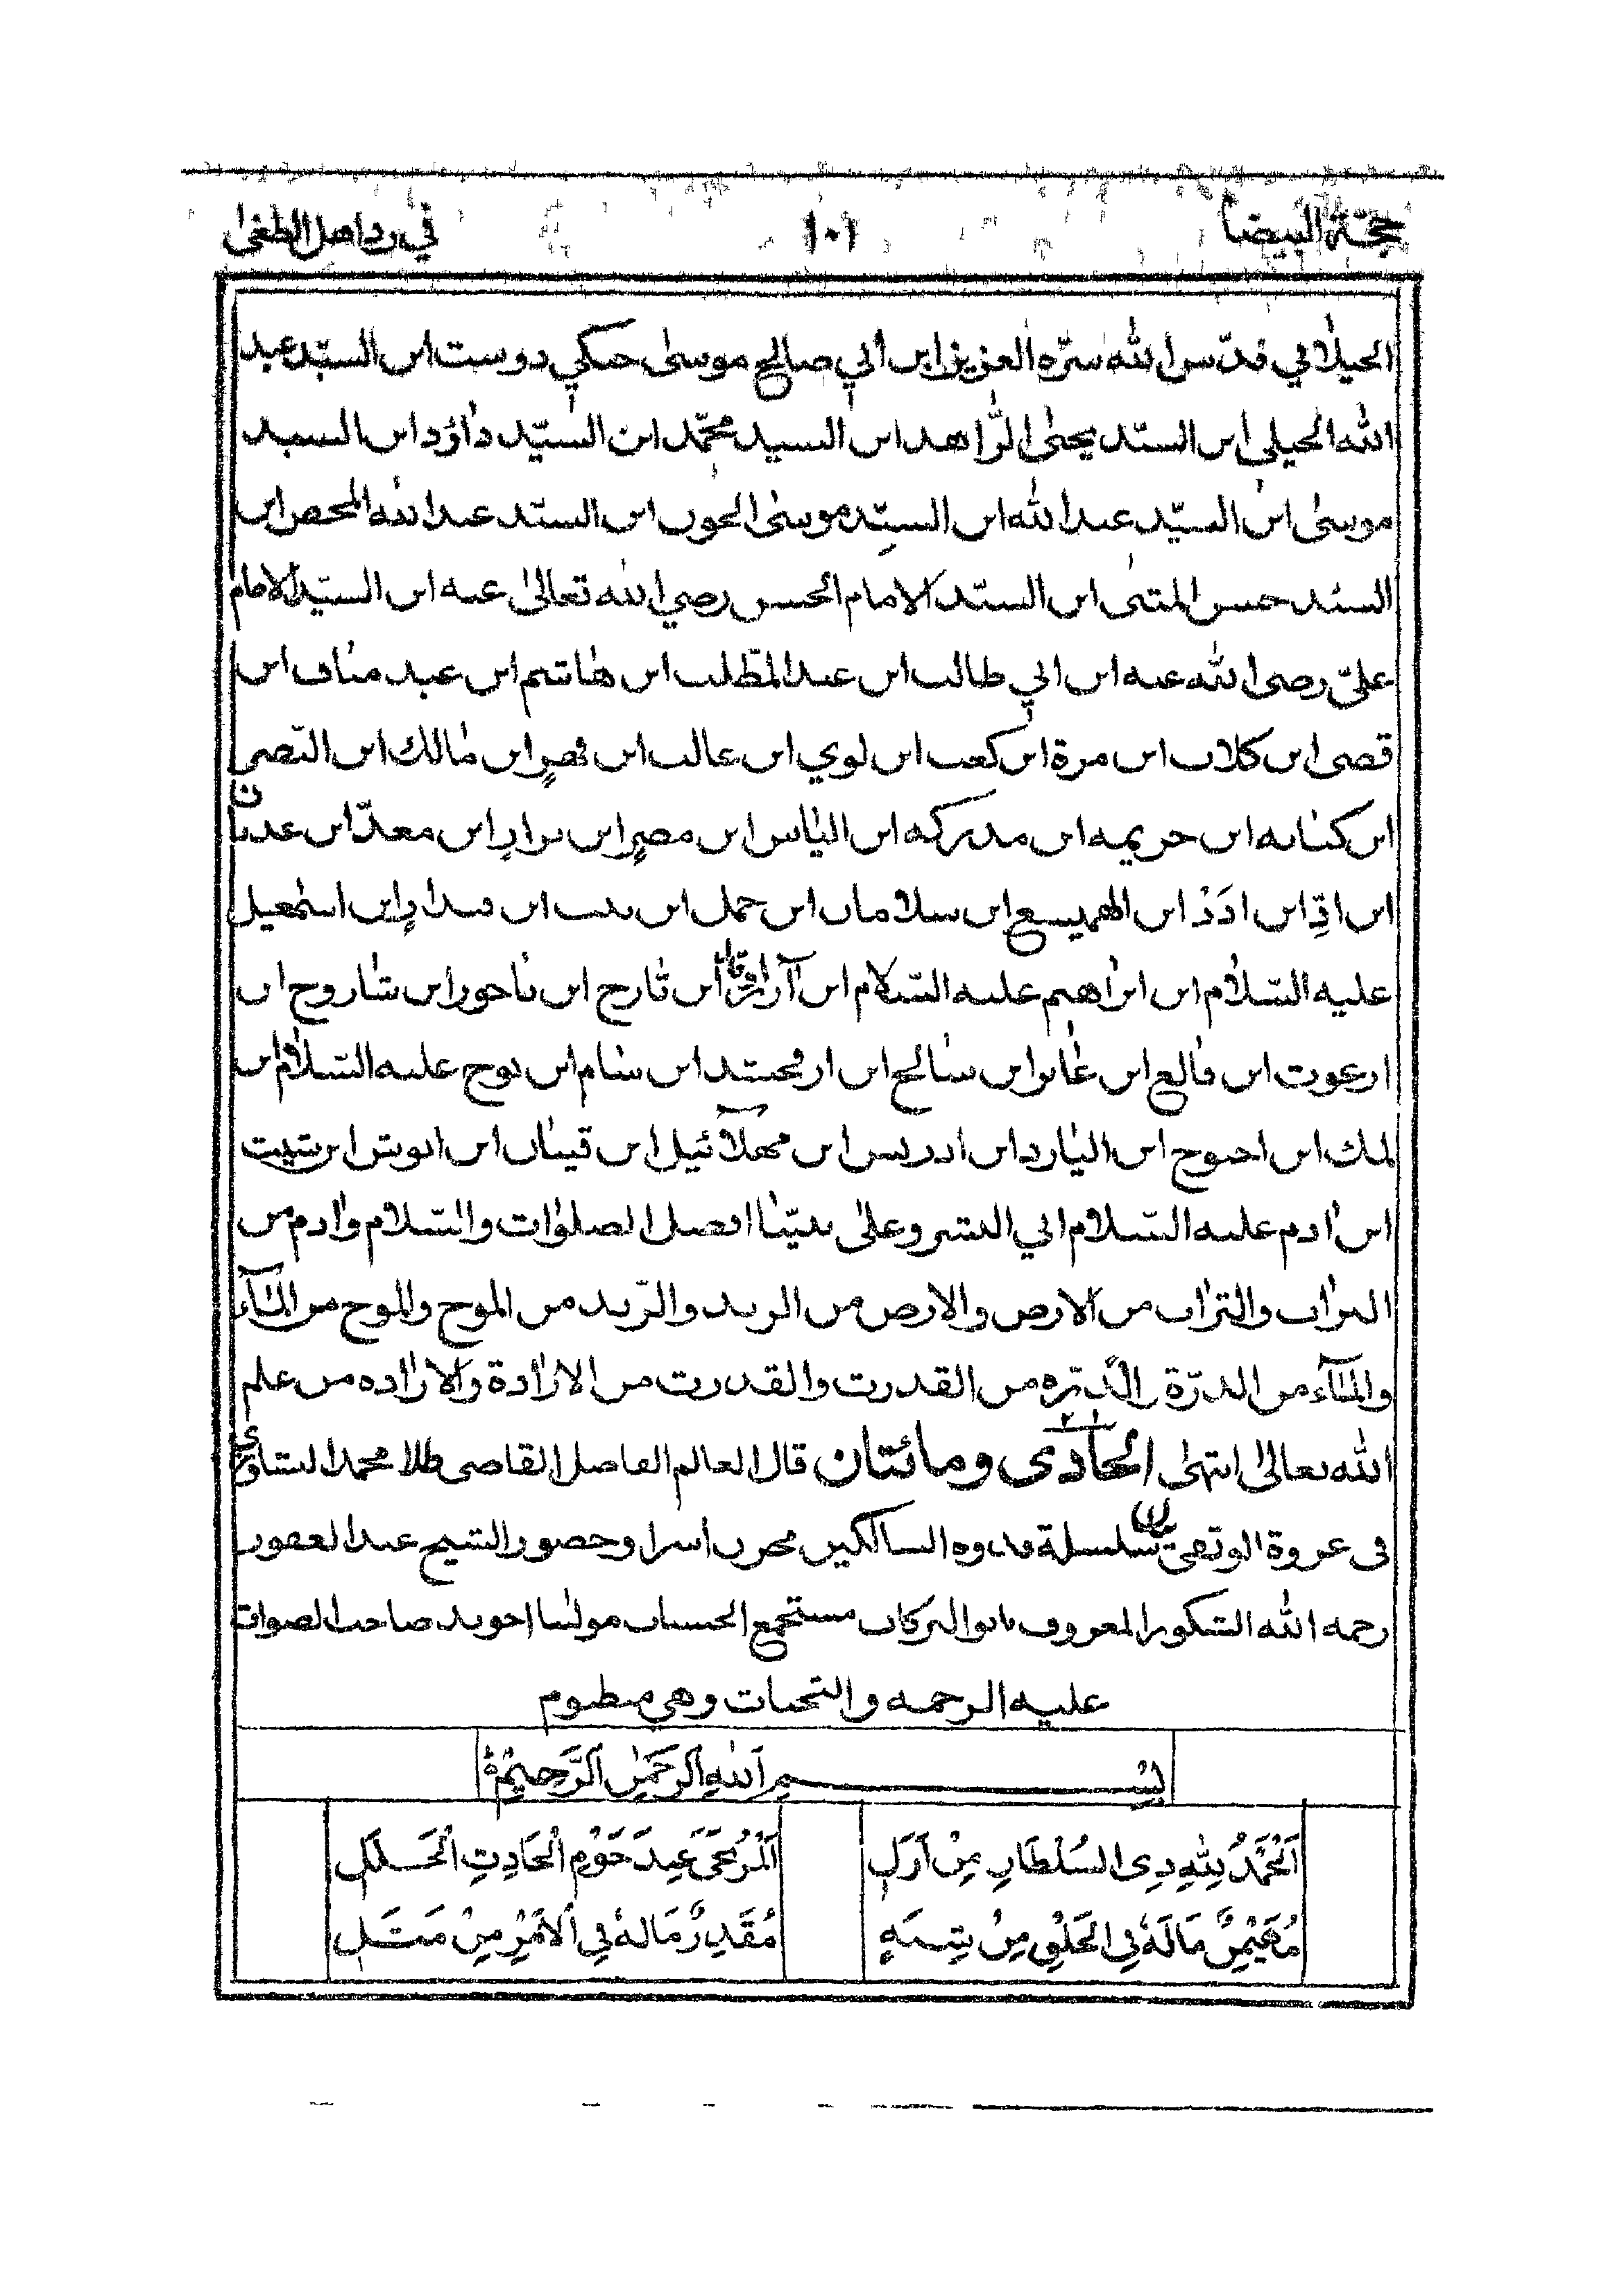 حجة البيضا ١٠١ في رد اهل الطغى
الجيلاني قدّس الله سرّه العزيز ابن أبي صالح موسىٰ جنكي دوست ابن السيّد عبد
الله الجيلي ابن السيّد يحيىٰ الزّاهد ابن السيد محمّد ابن السيّد داؤد ابن السيد
موسىٰ ابن السيّد عبد الله ابن السيّد موسىٰ الجون ابن السيّد عبد الله المحض ابن
السيّد حسن المثنى ابن السيّد الامام الحسن رضي الله تعالىٰ عنه ابن السيّد الامام
عليّ رضى الله عنه ابن ابي طالب ابن عبد المطّلب ابن هاشم ابن عبد مناف ابن
قصى ابن كلاب ابن مرة ابن كعب ابن لوي ابن غالب ابن فهر ابن مالك ابن النضر
ابن كنانه ابن خزيمه ابن مدركه ابن الياس ابن مضر ابن نزار ابن معدّ ابن عدنان
ابن ادّ ابن ادَدْ ابن الهميسع ابن سلامان ابن حمل ابن نبت ابن قيدار ابن اسمٰعيل
عليه السّلام ابن ابراهيم عليه السّلام ابن آزر ابن تارح ابن ناحور ابن شاروح ابن
ارعوت ابن فالع ابن غابر ابن سالح ابن ارفخشد ابن سام ابن نوح عليه السّلام ابن
لمك ابن اخنوح ابن اليارد ابن ادريس ابن مهلآئيل ابن قينان ابن انوش ابن شيت
ابن ادم عليه السّلام ابي البشر وعلىٰ نبيّنا افضل الصلوات والسّلام وادم من
التراب والتراب من الارض والارض من الزبد والزّبد من الموج والموج من المآء
والمآء من الدرّة والدّرّه من القدرت والقدرت من الارادة والاراده من علم
الله تعالىٰ انتهىٰ الحادى ومائتان قال العالم الفاضل القاضى طلا محمد الپشاورى
فى عروة الوثقى سلسلة قدوه السالكين محرب اسرار حضور الشيخ عبد الغفور
رحمه الله الشكور المعروف بابو البركات مستجمع الحسنات مولنا اخوند صاحب الصوات
عليه الرحمه والتحيات وهي منظوم
بِسْمِ اللهِ الرَّحْمٰنِ الرَّحِيْمِ
اَلْحَمْدُ لِلّٰهِ ذِى السُلْطَانِ مِنْ اَزَلِ اَلْمُرْتَجَى عِنْدَ خَوْمِ الْحَادِثِ الْجَلَلِ
مُهَيْمِنٌ مَالَهُ فِى الخَلْقِ مِنْ شِبْهٍ مُقَدِرٌ مَالهُ فِى الْاَمْرِ مِنْ مَثَلِ